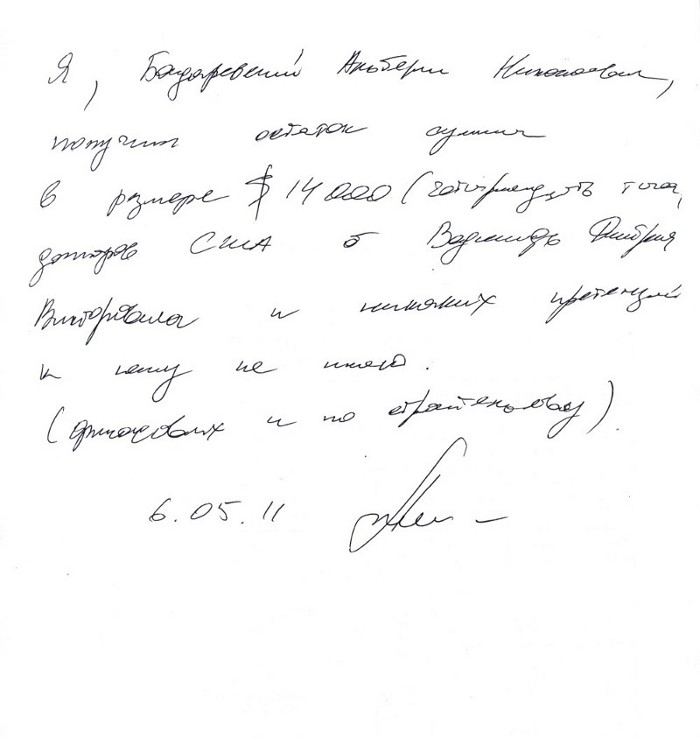 Я, Бодаревский Альберт Николаевич,
получил остаток суммы
в размере $ 14 000 (четырнадцать тысяч
долларов США от Дмитрия
Викторовича и никаких претензий
к нему не имею.
(финансовых и по строительству).
6.05.11